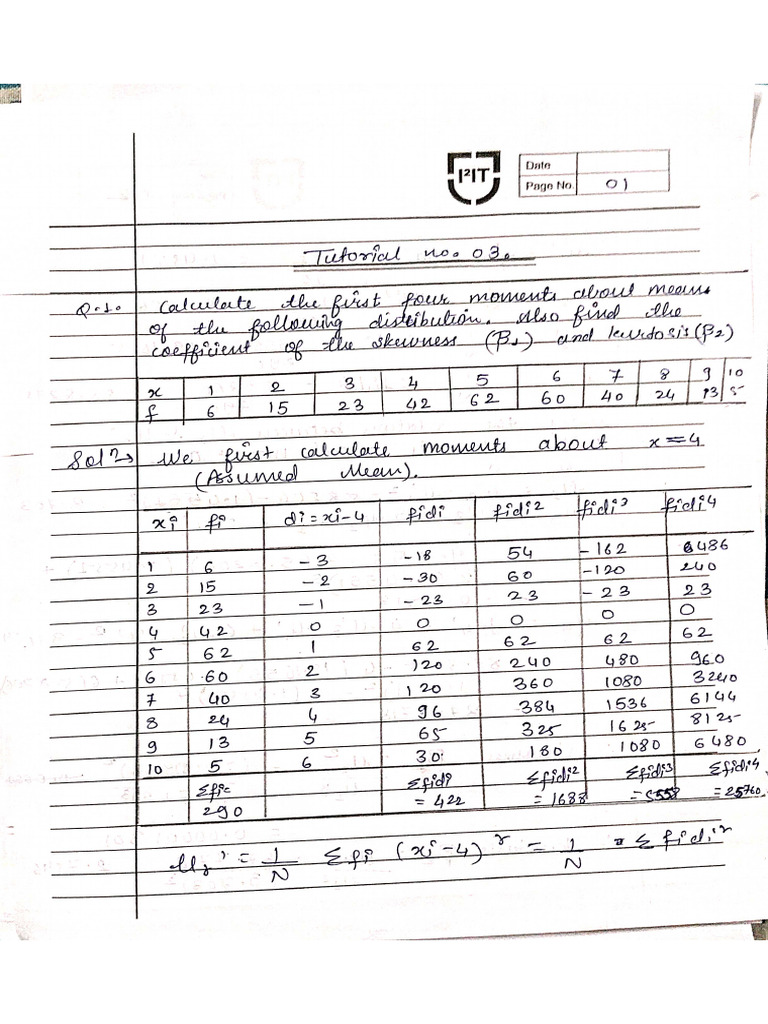 I²IT
Date
Page No. 01
Tutorial no. 03.
Q.1. Calculate the first four moments about means
of the following distibution. Also find the
coefficient of the skewness (β1) and kurtosis (β2)
x 1 2 3 4 5 6 7 8 9 10
f 6 15 23 42 62 60 40 24 13 5
We first calculate moments about x=4
(Assumed Mean).
xi fi di=xi-4 fidi fidi² fidi³ fidi4
1 6 -3 -18 54 -162 6486
2 15 -2 -30 60 -120 240
3 23 -1 -23 23 -23 23
4 42 0 0 0 0 0
5 62 1 62 62 62 62
6 60 2 120 240 480 960
7 40 3 120 360 1080 3240
8 24 4 96 384 1536 6144
9 13 5 65 325 1625 8125
10 5 6 30 180 1080 6480
Σfi= Σfidi Σfidi² Σfidi3 Σfidi4
290 = 422 = 1688 = 5558 = 25760
μr' = 1/N Σfi (xi-4)^r = 1/N Σfidi^r